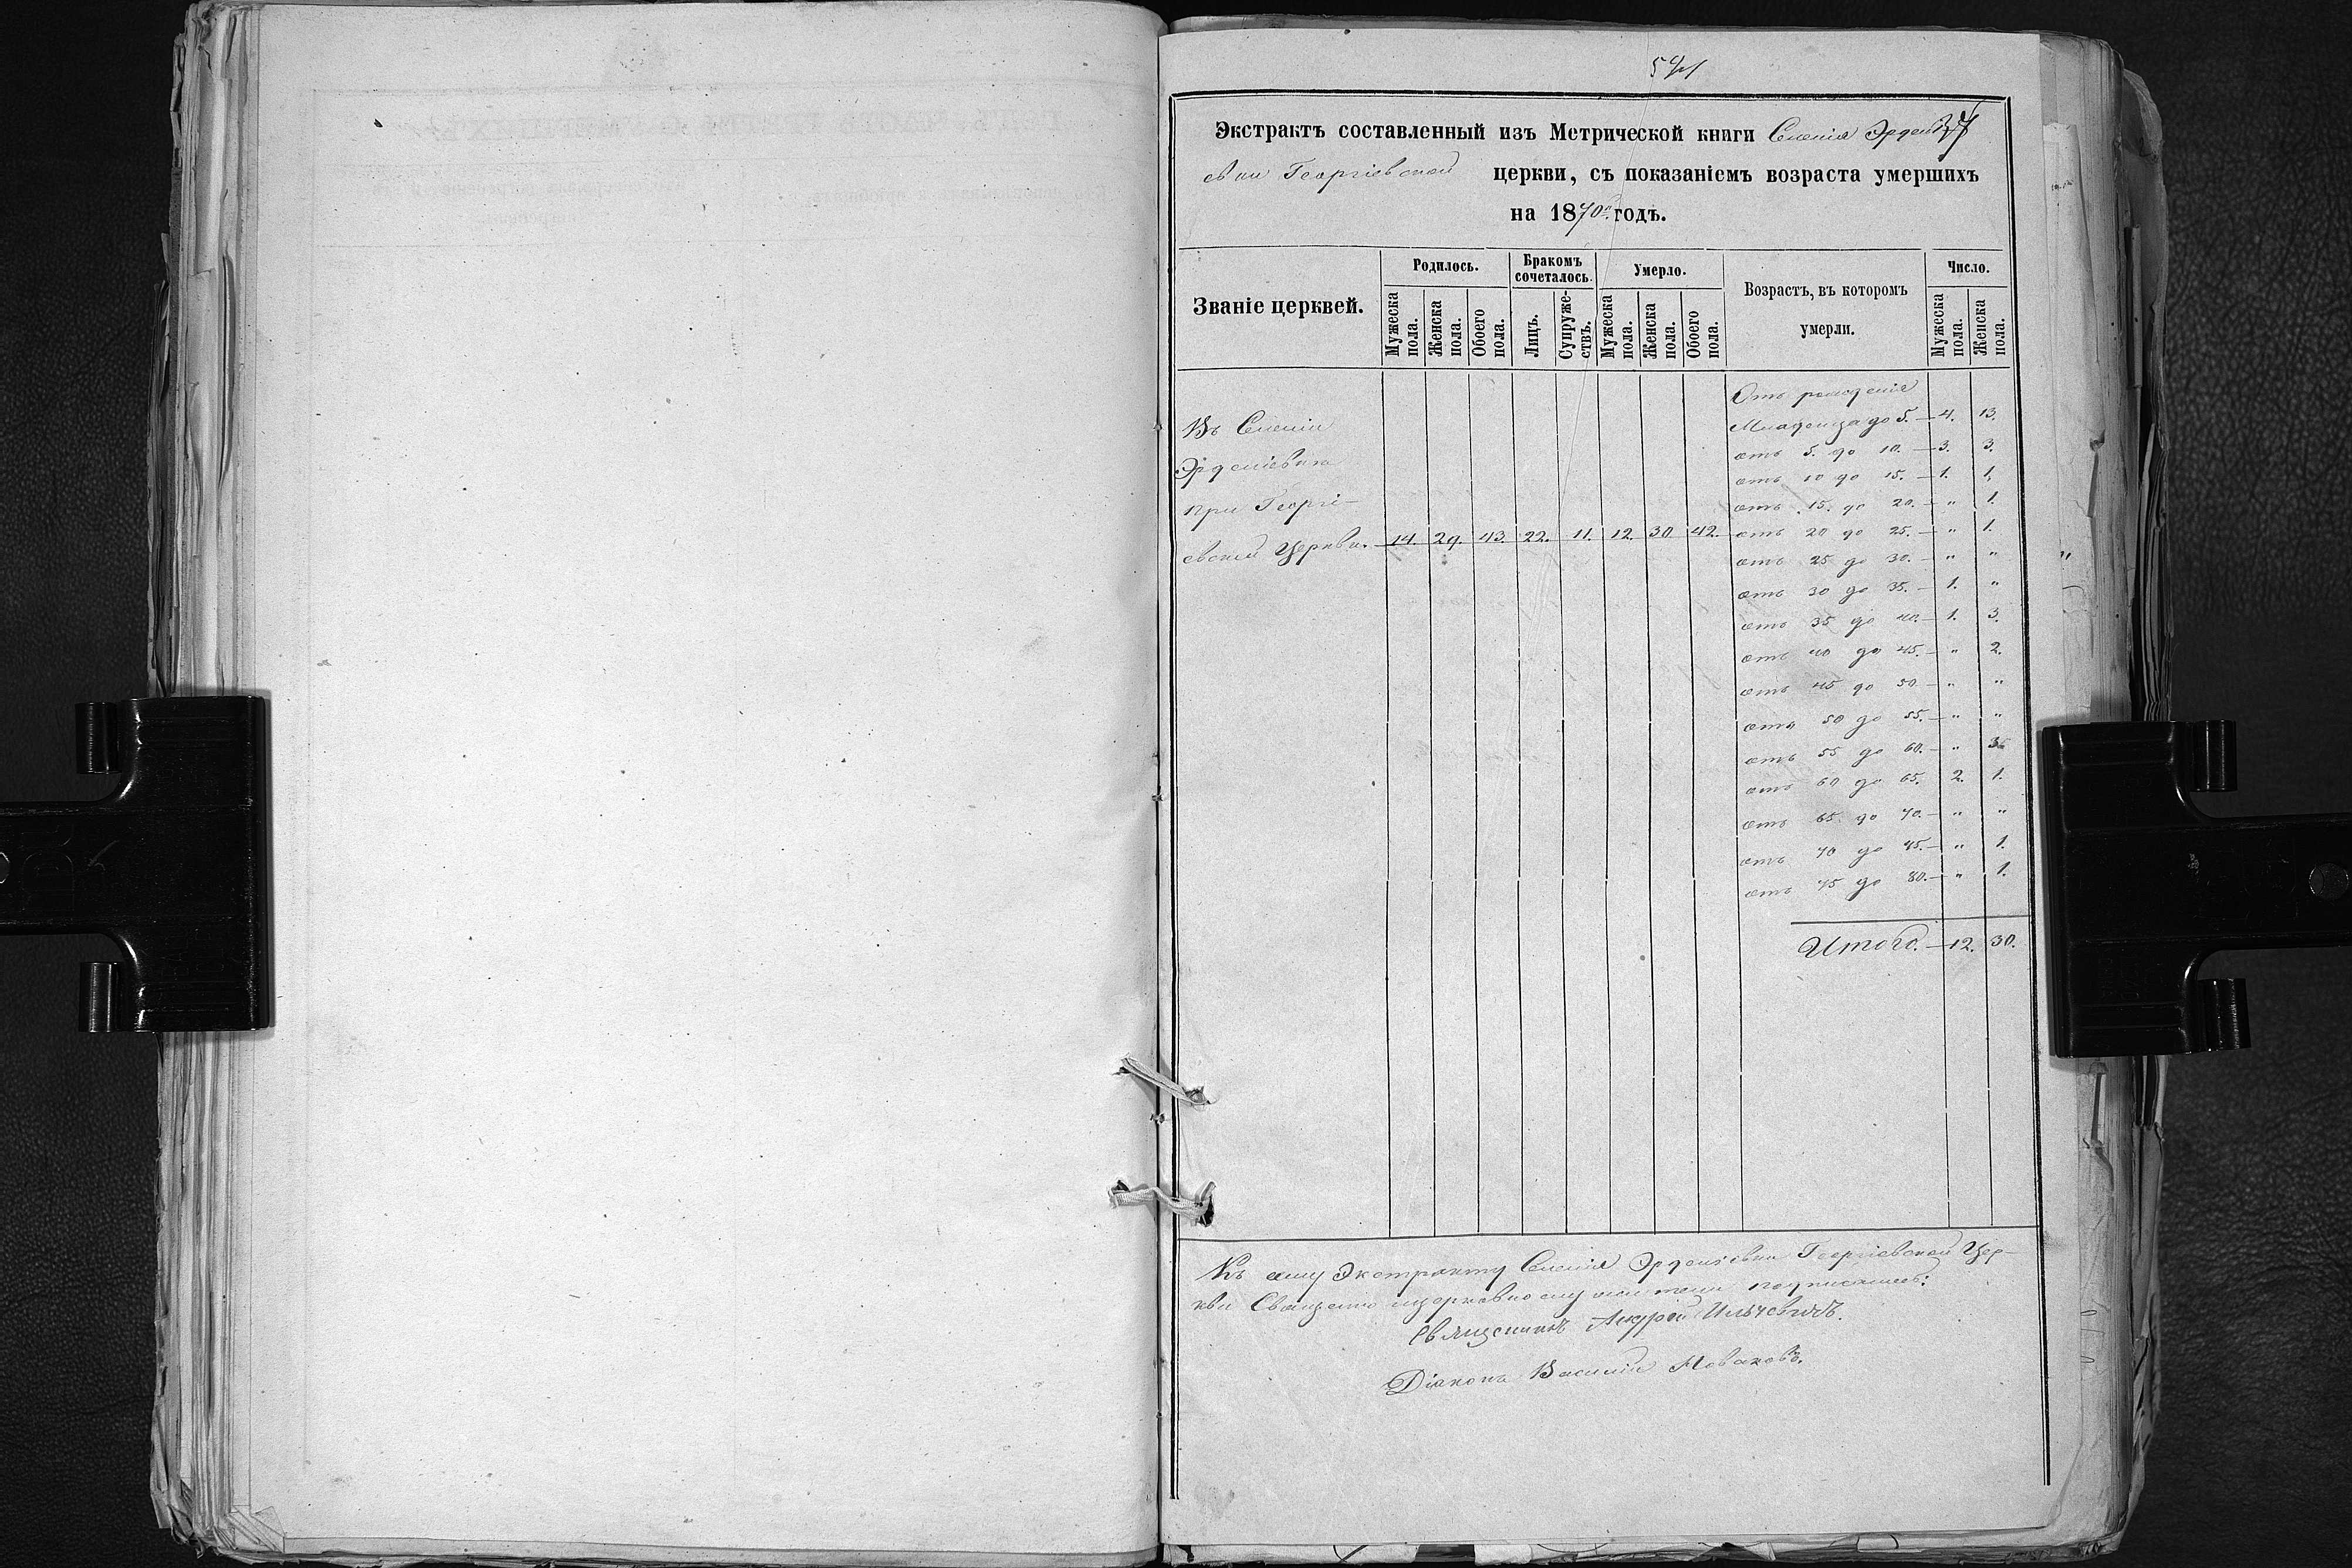 541
Экстрактъ составленный изъ Метрической книги Селенія Эрдені-
евки Георгіевской церкви, съ показаніемъ возраста умершихъ
на 1870й годъ.
Званіе церквей.
Родилось.
Бракомъ сочеталось.
Умерло.
Возрастъ, въ которомъ умерли.
Число.
Мужеска пола.
Женска пола.
Обоего пола.
Лицъ.
Супруже-ствъ.
Мужеска пола.
Женска пола.
Обоего пола.
Мужеска пола.
Женска пола.
Отъ рожденія
Младенца до 5. — 4. 13.
отъ 5. до 10. — 3. 3.
отъ 10 до 15. — 1. 1.
отъ 15. до 20. — " 1.
отъ 20 до 25. — " 1.
отъ 25 до 30. — " "
отъ 30 до 35. — 1. "
отъ 35 до 40. — 1. 3.
отъ 40 до 45. — " 2.
отъ 45 до 50 — " "
отъ 50 до 55. — " "
отъ 55 до 60. — " 3
отъ 60 до 65. 2. 1.
отъ 65. до 70. — " "
отъ 70 до 75. — " 1.
отъ 75 до 80. — " 1.
Итого. — 12. 30.
Въ Селеніи
Эрденіевка
при Георгі-
евской Церкви. — 14. 29. 43. 22. 11. 12. 30 42.
Къ сему Экстракту Селенія Эрденіевки Георгіевской Цер-
кви Священно церковно служители подписались:
Священникъ Андрей Ильчевичъ.
Діаконъ Василій Новаковъ.